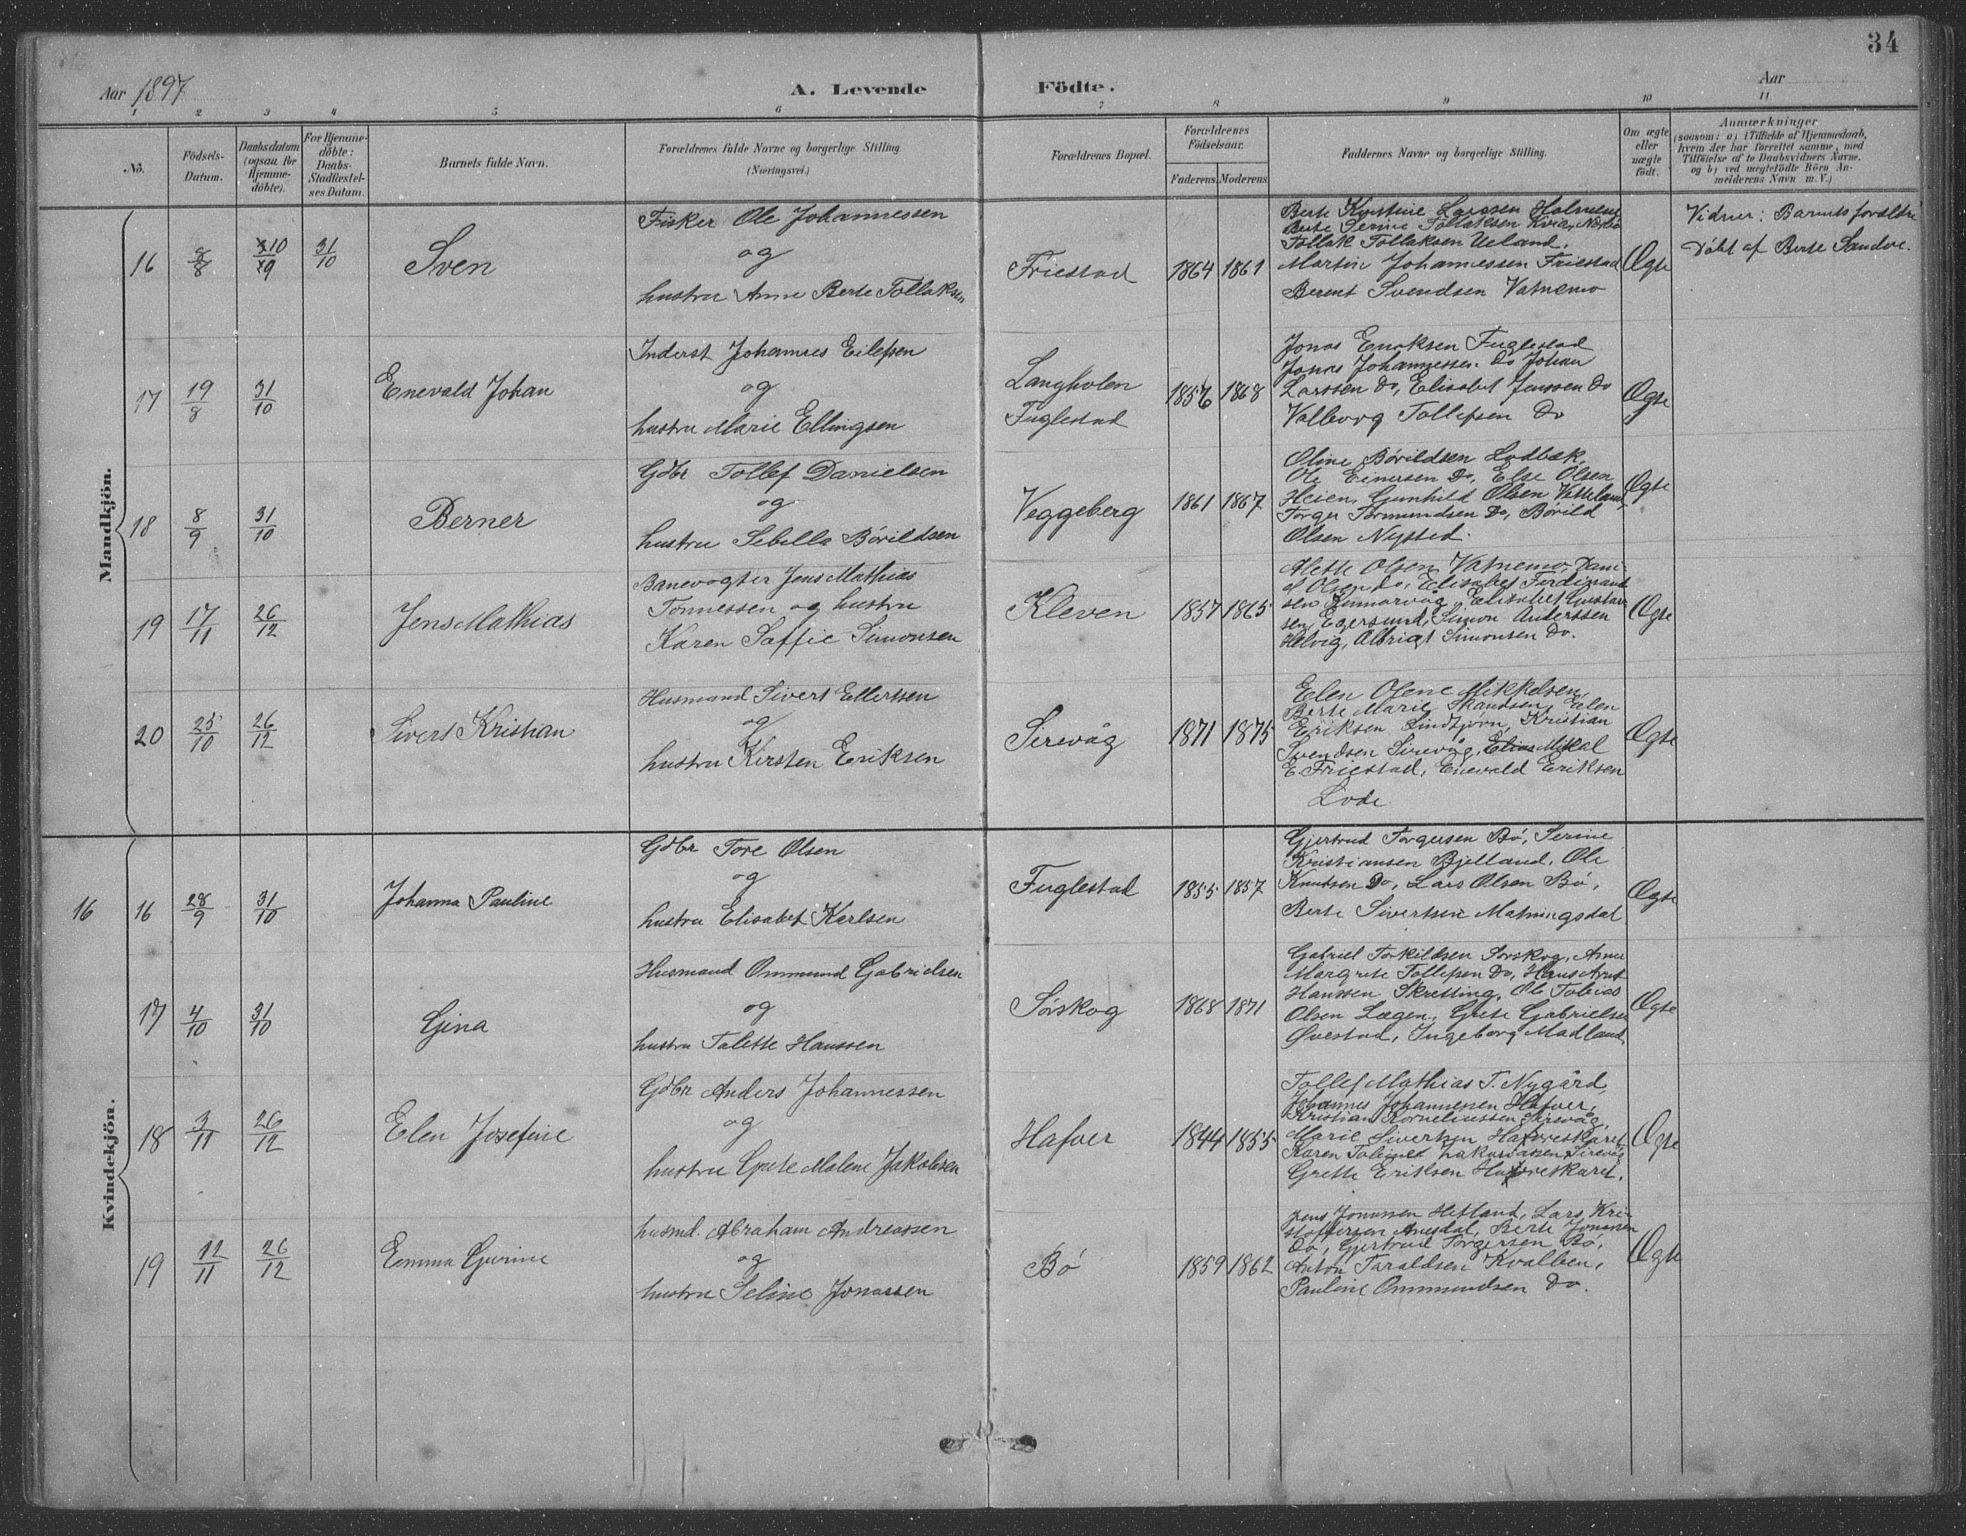 34
Aar 1897
A. Levende Födte.
Aar
1 2 3 4 5 6 7 8 9 10 11
No.
Födsels-Datum.
Daabsdatum (ogsaa for Hjemmedöbte).
For Hjemmedöbte: Daabs-Stadfæstelses Datum.
Barnets fulde Navn.
Forældrenes fulde Navne og borgerlige Stilling.
(Næringsvei.)
Forældrenes Bopæl.
Forældrenes Födselsaar.
Faderens. Moderens.
Faddernes Navne og borgerlige Stilling.
Om ægte eller uægte födt.
Anmærkninger
(saasom: a) i Tilfælde af Hjemmedaab, hvem der har forrettet samme, med Tilföielse af to Daabsvidners Navne, og b) ved uægtefödte Börn Anmelderens Navn m. V.)
Mandkjön.
16 8/8 31/10 Sven
Fisker Ole Johannessen
og
hustru Anne Berte Tollaksen
Friestad 1864 1861
Berte Kristine Larssen Holmene
Berte Serine Tollaksen Kvia, Nærbø
Tollak Tollaksen Ueland,
Martin Johannessen Friestad
Berent Svendsen Vatnemo
Ægte
Vidner: Barnets forældre
Døbt af Berte Sandve.
17 19/8 31/10 Enevald Johan
Inderst Johannes Eilefsen
og
hustru Marie Ellingsen
Langholen
Fuglestad
1856 1868
Jonas Enoksen Fuglestad
Jonas Johannessen Do Johan
Larssen Do, Elisabet Jenssen Do
Valborg Tollefsen Do
Ægte
18 8/9 31/10 Berner
Gdbr Tollef Danielsen
og
hustru Sebella Børildsen
Veggeberg 1861 1867
Oline Børildsen Lodbæk
Ole Einersen Do, Else Olsen
Heien, Gunhild Olsen
Torger Tormundsen Do, Børild
Olsen Nysted.
Ægte
19 17/11 26/12 Jens Mathias
Banevogter Jens Mathias
Tonnessen og hustru
Karen Saffie Simonsen
Kleven 1857 1865
Alette Olsen Vatnemo, Dani-
el Olsen Do, Elisabet Ferdinand-
sen, Elisabet Gustav-
sen, Egersund, Simon Anderssen
Helvig, Albrigt Simonsen Do.
Ægte
20 25/10 26/12 Sivert Kristian
Husmand Sivert Ellertsen
og
hustru Kirsten Eriksen
Sirevåg 1871 1875
Elen Olene Mikkelsen,
Berte Marie Skandsen, Elen
Eriksen Lindtjørn, Kristian
Svendsen Sirevåg, Elias Mikal
E. Friestad, Enevald Eriksen
Lode
Ægte
Kvindekjön.
16
16 28/9 31/10 Johanna Pauline
Gdbr Tore Olsen
og
hustru Elisabet Karlsen
Fuglestad 1855 1857
Gjertrud Torgersen Bø, Serine
Kristiansen Bjelland, Ole
Knudsen Do, Lars Olsen Bø,
Berte Sivertsen Matningsdal
Ægte
17 4/10 31/10 Gina
Husmand Ommund Gabrielsen
og
hustru Talette Hanssen
Sørskog 1868 1871
Gabriel Torkildsen Sørskog, Anne
Margrete Tollefsen Do, Hans Arnt
Hanssen Skretting, Ole Tobias
Olsen Lægen, Grete Gabrielsen
Øvestad, Ingeborg Madland,
Ægte
18 3/11 26/12 Elen Josefine
Gdbr Anders Johannessen
og
hustru Grete Malene Jakobsen
Hafver 1844 1855
Tollef Mathias T. Nygård,
Johannes Johannessen Hafver,
Kristian Korneliussen Sirevåg,
Marie Sivertsen Hafreskaret
Karen Zakariassen Sirevåg
Grette Eriksen Hafreskaret.
Ægte
19 12/11 26/12 Emma Gurine
husmd. Abraham Andreassen
og
hustru Seline Jonassen
Bø 1859 1862
Jens Jonassen Hetland, Lars Kri-
stoffersen, Berte Jonassen
Do, Gjertrud Torgersen Bø,
Anton Taraldsen Kvalben,
Pauline Ommundsen Do.
Ægte